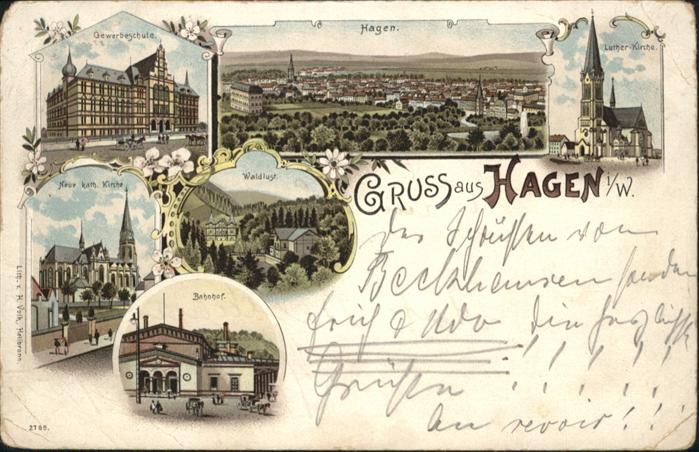 Gewerbeschule.
Hagen.
Luther-Kirche.
Neue kath. Kirche
Waldlust.
GRUSS aus HAGEN i/W.
Bahnhof.
Lith. v. H. Volk, Heilbronn.
2786.
von
senden
Erich & Udo die herzlichsten
Grüßen ! ! ! ! ! !
Au revoir!!!